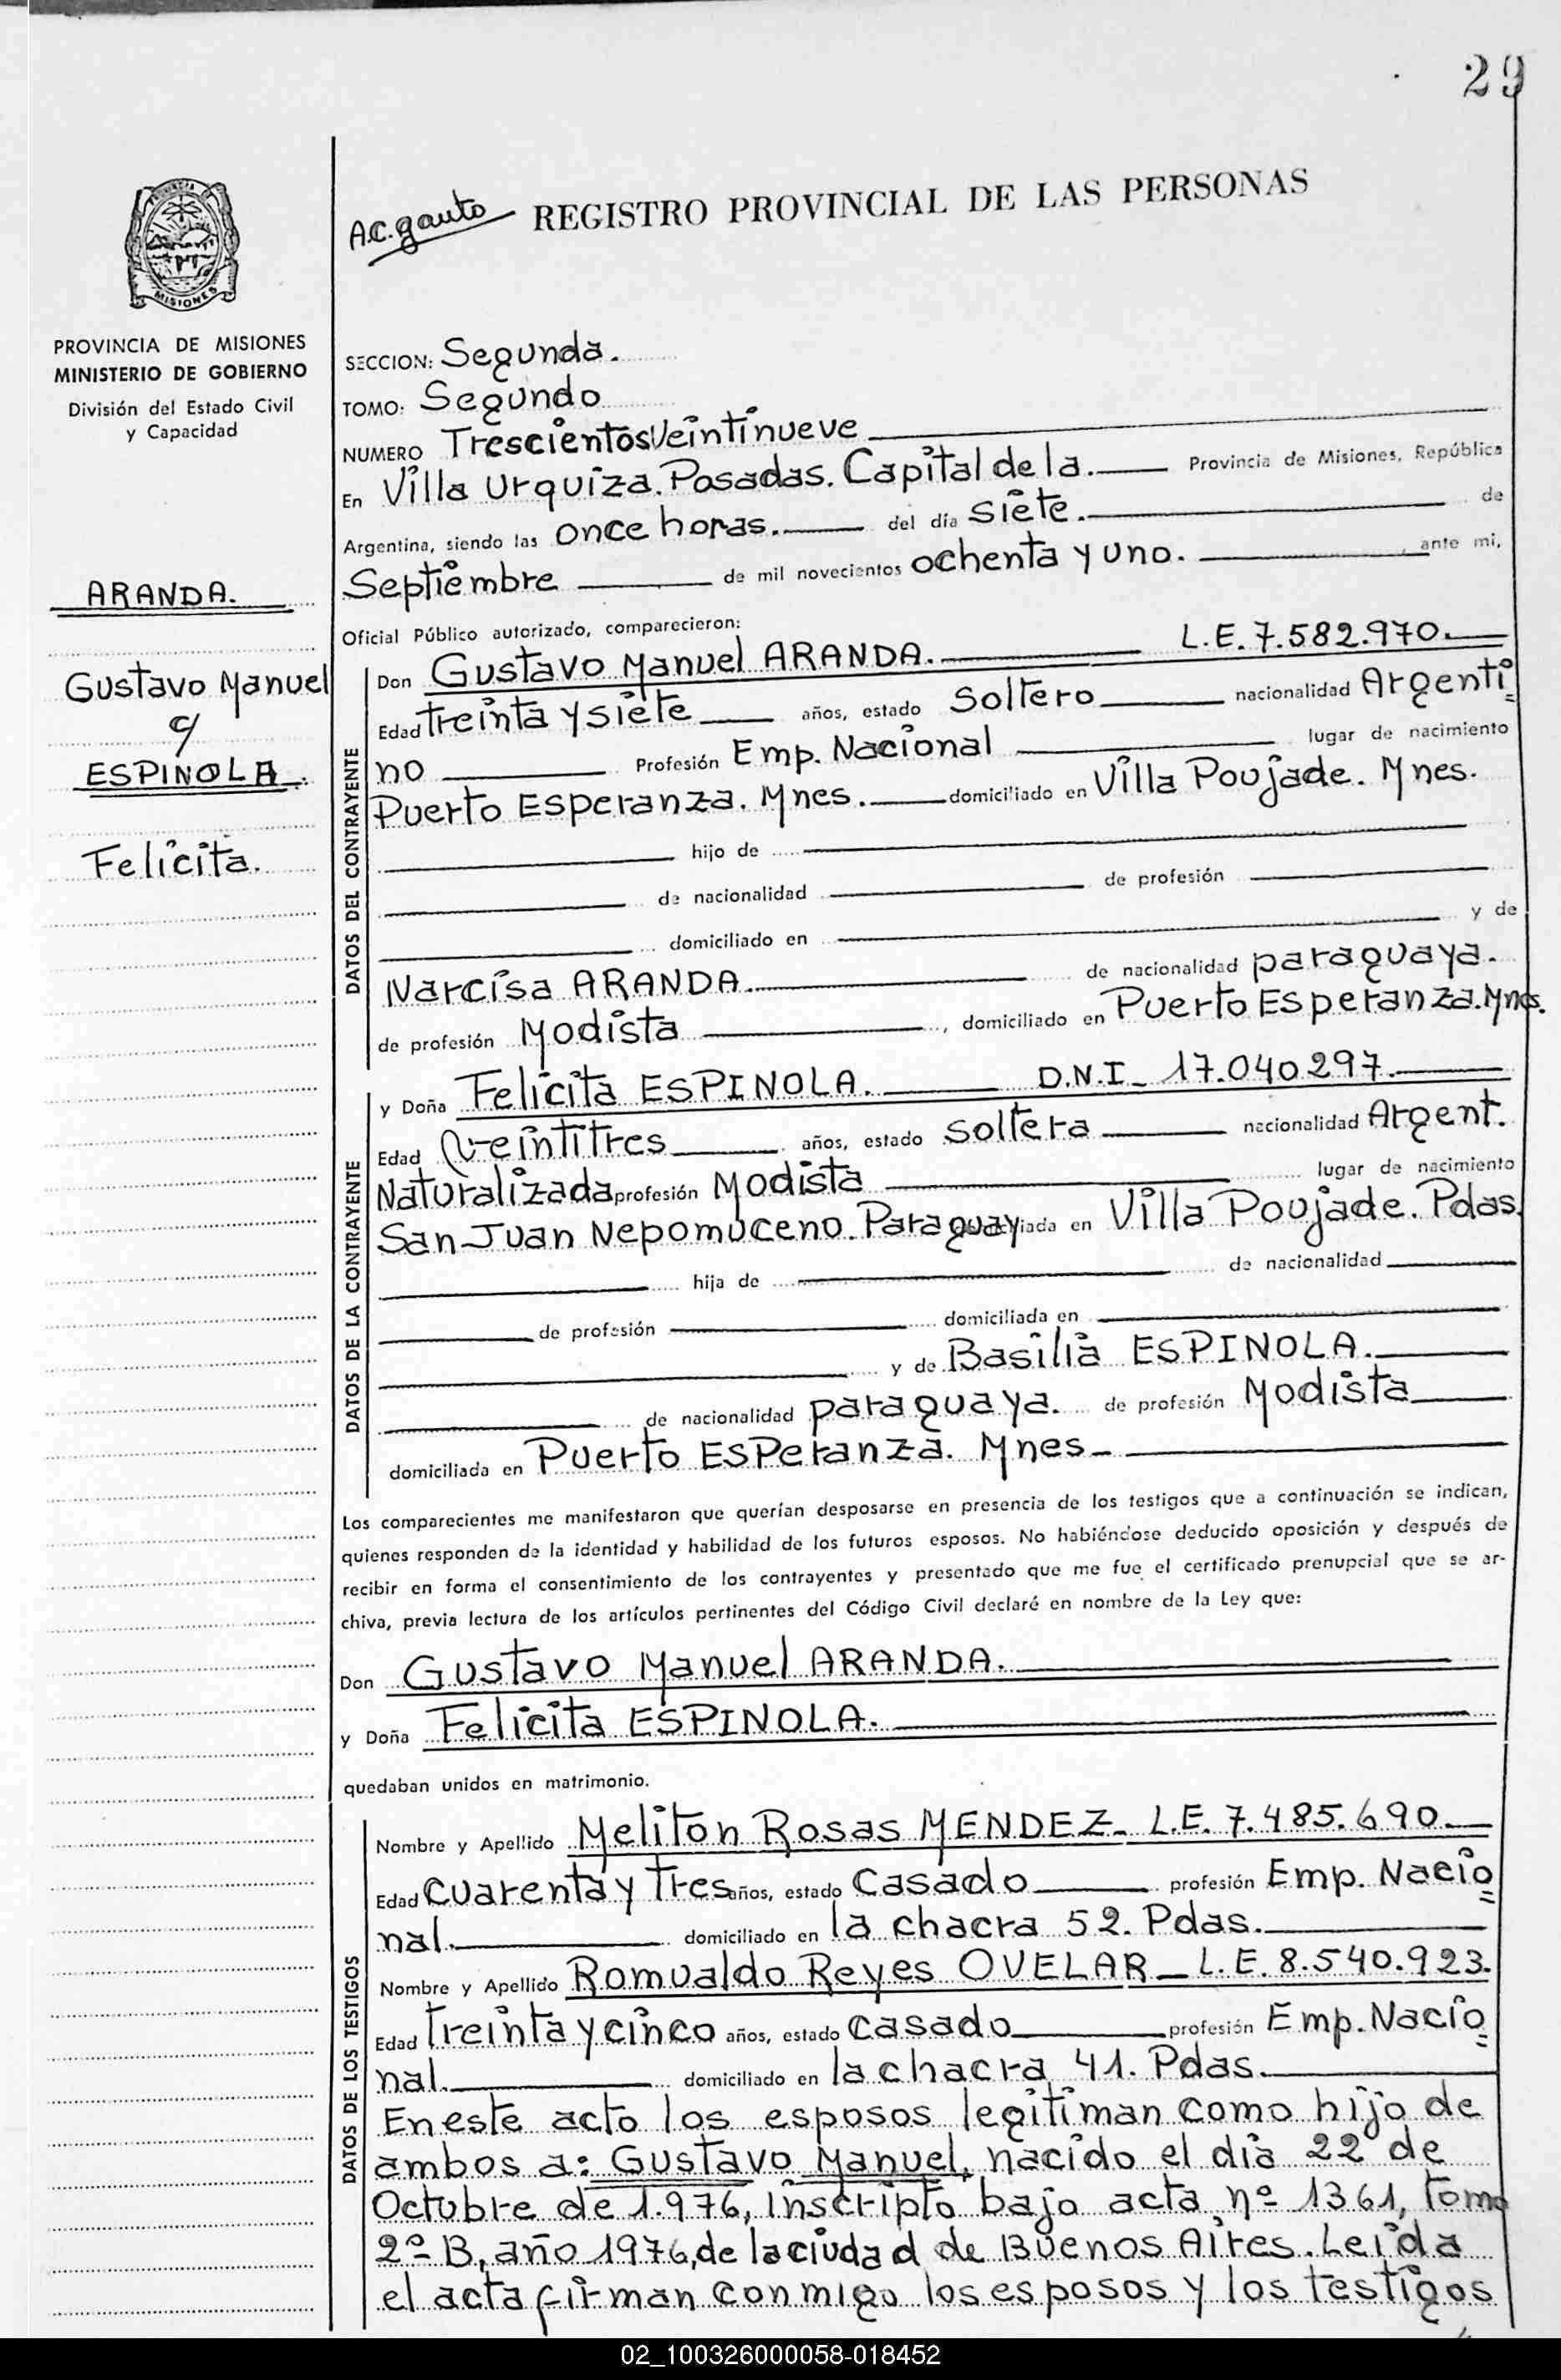 29
PROVINCIA
MISIONES
PROVINCIA DE MISIONES
MINISTERIO DE GOBIERNO
División del Estado Civil
y Capacidad
ARANDA.
Gustavo Manuel
c/
ESPINOLA.
Felicita.
A.C. gauto REGISTRO PROVINCIAL DE LAS PERSONAS
SECCION: Segunda.
TOMO: Segundo
NUMERO Trescientos Veintinueve
En Villa Urquiza. Posadas. Capital de la. Provincia de Misiones, República
Argentina, siendo las once horas. del día siete. de
Septiembre de mil novecientos ochenta y uno. , ante mi,
Oficial Público autorizado, comparecieron:
DATOS DEL CONTRAYENTE
Don Gustavo Manuel ARANDA. L.E. 7.582.970.
Edad treinta y siete años, estado Soltero nacionalidad Argenti=
no Profesión Emp. Nacional lugar de nacimiento
Puerto Esperanza. Mnes. domiciliado en Villa Poujade. Mnes.
hijo de
de nacionalidad de profesión
domiciliado en y de
Narcisa ARANDA. de nacionalidad paraguaya.
de profesión Modista , domiciliado en Puerto Esperanza. Mnes.
DATOS DE LA CONTRAYENTE
y Doña Felicita ESPINOLA. D.N.I_ 17.040.297.
Edad Veintitres años, estado Soltera nacionalidad Argent.
Naturalizada profesión Modista lugar de nacimiento
San Juan Nepomuceno. Paraguay iada en Villa Poujade. Pdas.
hija de de nacionalidad
de profesión domiciliada en
y de Basilia ESPINOLA.
de nacionalidad paraguaya. de profesión Modista
domiciliada en Puerto Esperanza. Mnes-
Los comparecientes me manifestaron que querían desposarse en presencia de los testigos que a continuación se indican,
quienes responden de la identidad y habilidad de los futuros esposos. No habiéndose deducido oposición y después de
recibir en forma el consentimiento de los contrayentes y presentado que me fue el certificado prenupcial que se ar-
chiva, previa lectura de los artículos pertinentes del Código Civil declaré en nombre de la Ley que:
Don Gustavo Manuel ARANDA.
y Doña Felicita ESPINOLA.
quedaban unidos en matrimonio.
DATOS DE LOS TESTIGOS
Nombre y Apellido Meliton Rosas MENDEZ_ L.E. 7.485.690.
Edad Cuarenta y Tres años, estado Casado profesión Emp. Nacio=
nal. domiciliado en la chacra 52. Pdas.
Nombre y Apellido Romualdo Reyes OVELAR_ L.E. 8.540.923.
Edad Treinta y cinco años, estado Casado profesión Emp. Nacio=
nal. domiciliado en la chacra 41. Pdas.
En este acto los esposos legitiman como hijo de
ambos a: Gustavo Manuel, nacido el dia 22 de
Octubre de 1.976, inscripto bajo acta nº 1361, tomo
2º B, año 1976, de la ciudad de Buenos Aires. Leida
el acta firman conmigo los esposos y los testigos
02_100326000058-018452